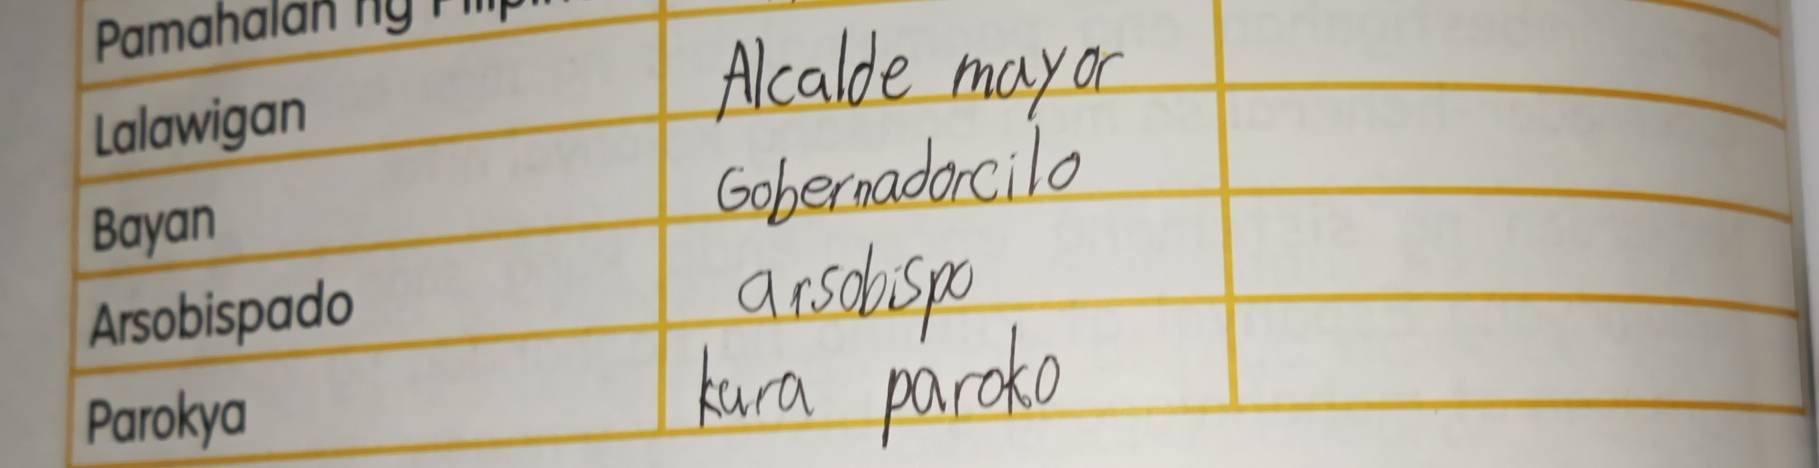 Pamahalan ng
Lalawigan Alcalde mayor
Bayan Gobernadorcilo
Arsobispado arsobispo
Parokya kura paroko